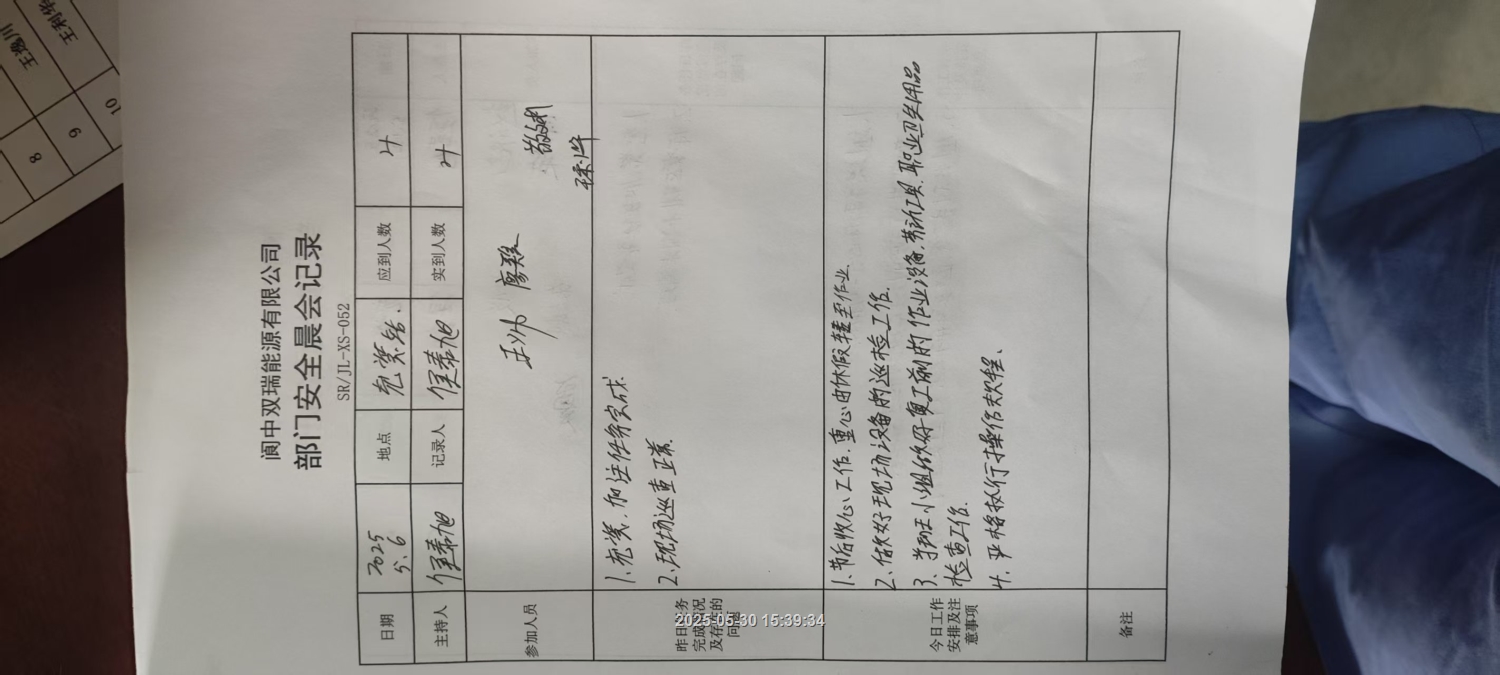 阆中双瑞能源有限公司
部门安全晨会记录
SR/JL-XS-052
日期 2025 5.6 地点 充装站. 应到人数 4
主持人 记录人 实到人数 4
参加人员 王 廖
昨日任务完成情况及存在的问题
1、充装、加注任务完成.
2、现场巡查正常.
今日工作安排及注意事项
1、节后收心工作.重心由休假转至作业.
2、做好现场设备的巡检工作.
3、各班小组做好复工前的作业设备.劳动工具.职业卫生用品
检查工作.
4、严格执行操作规程、
备注
王逸川
王利华
8
9
10
2025-05-30 15:39:34